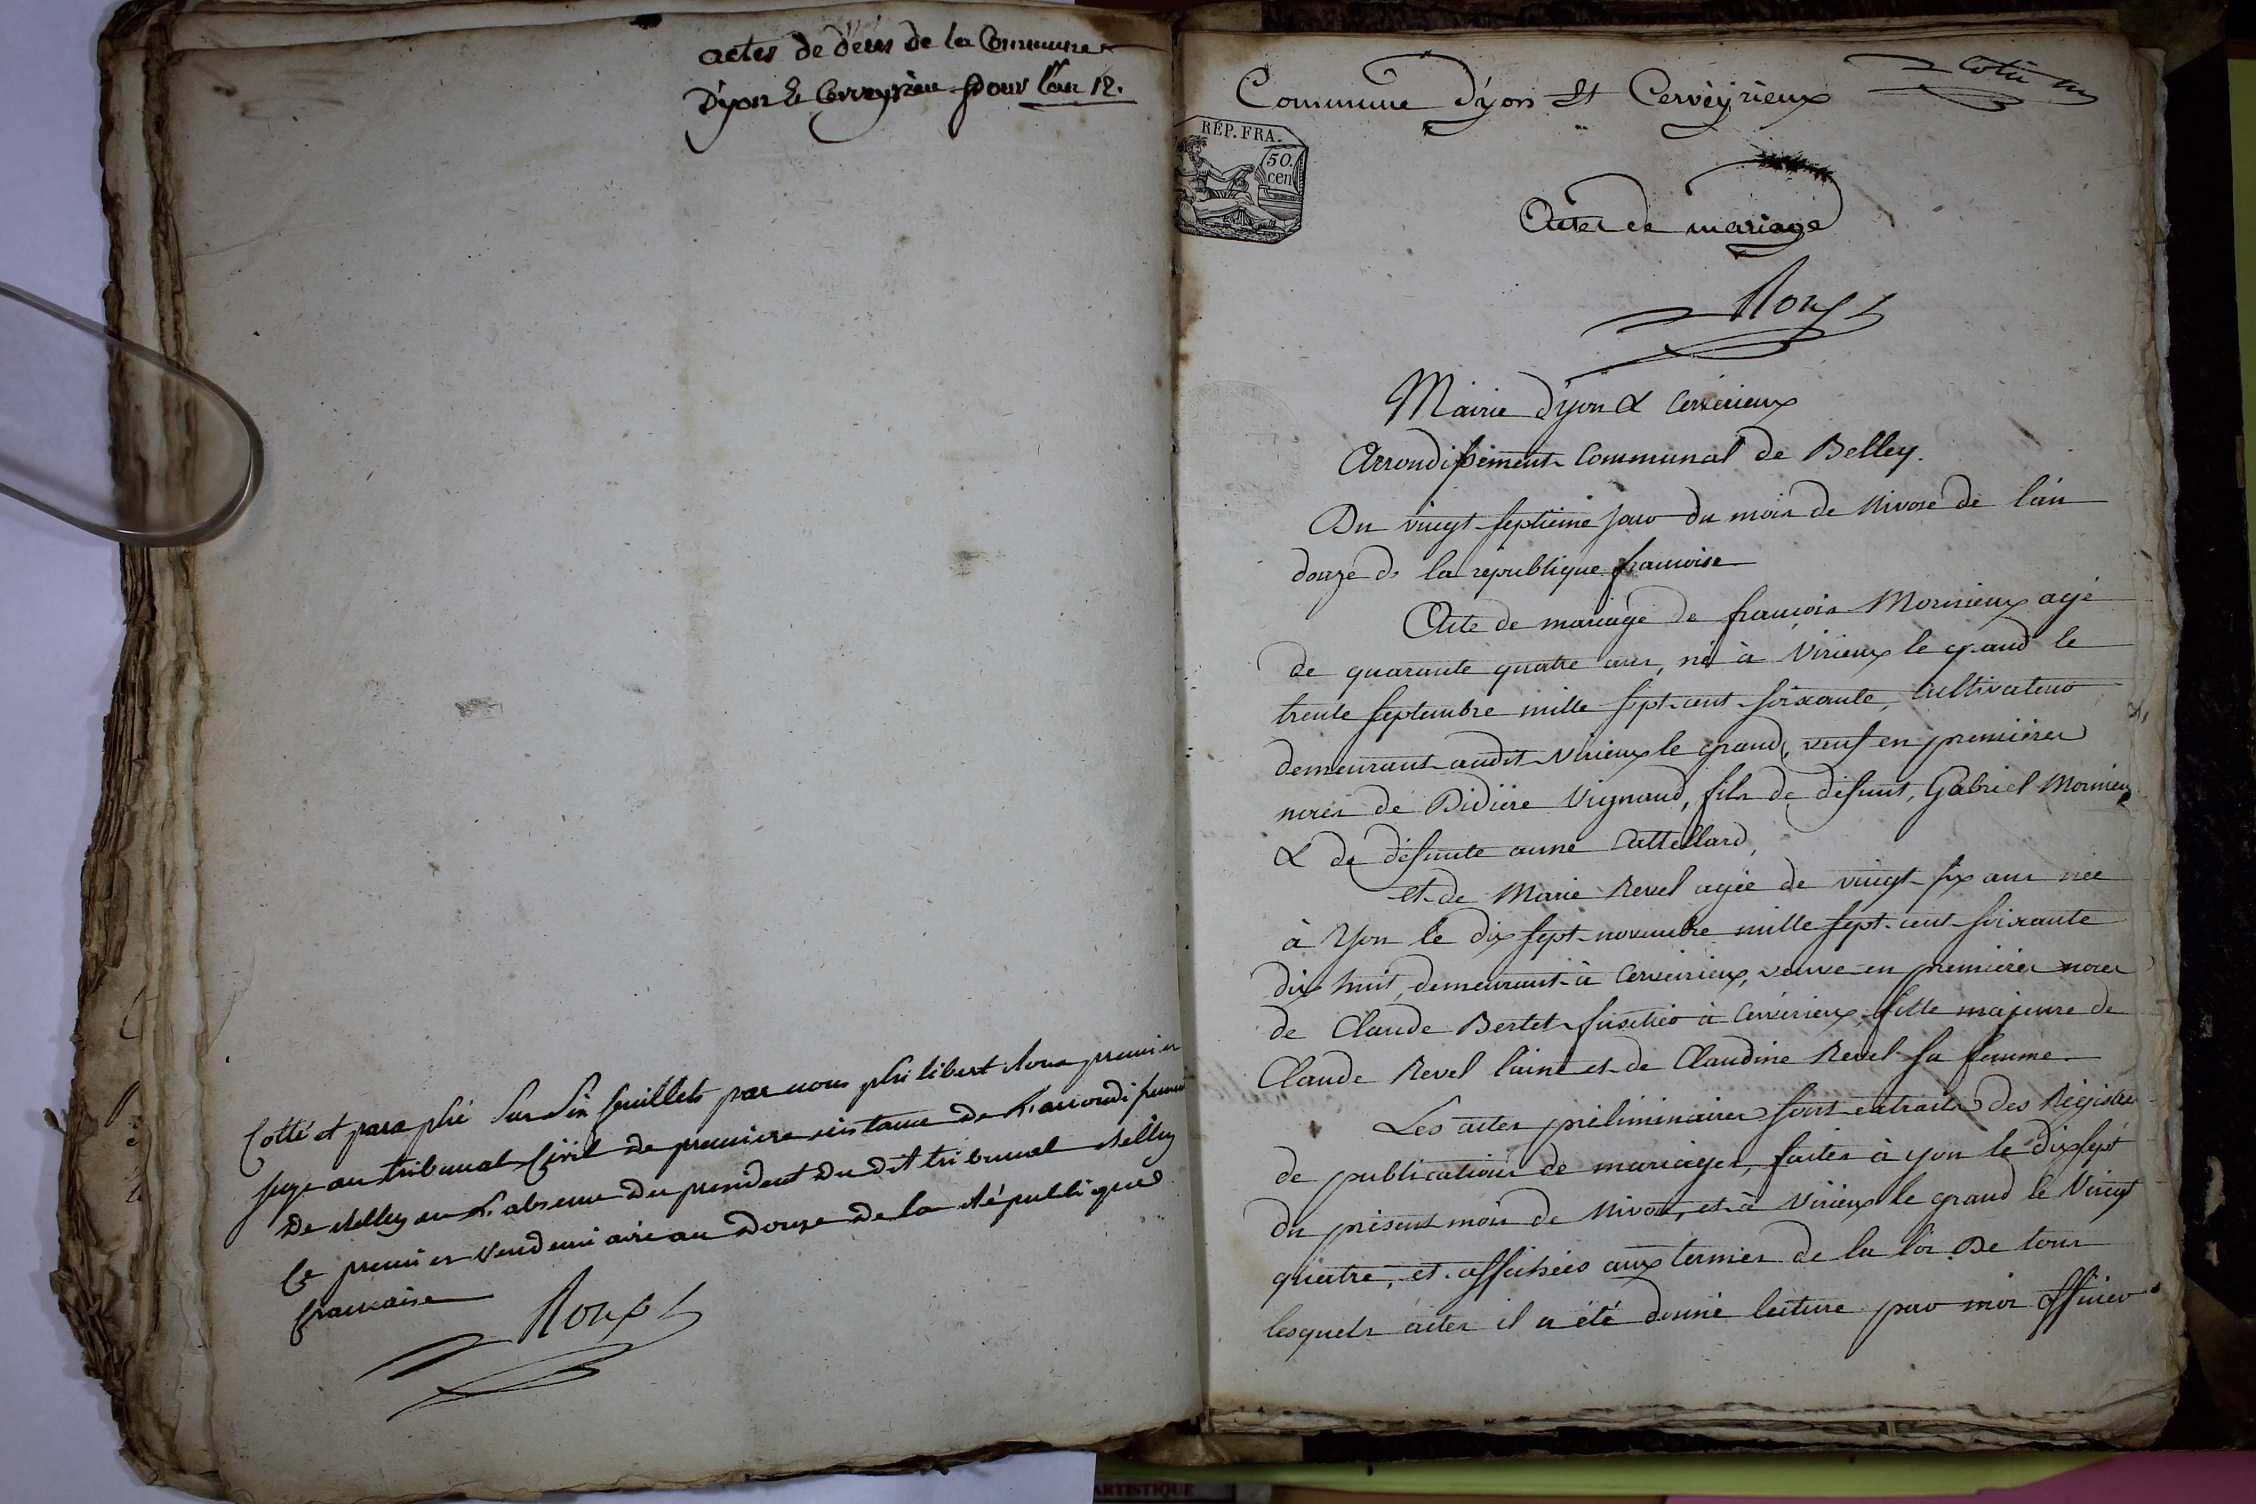 actes de décès de la Commune
D'yon & Cerveyrieu pour l'an 12.
Cotté et paraphé sur six feuillets par nous philibert Roux premier
juge au tribunal Civil de premiere instance de L'arrondissem
De Belley en L'absence Du president Du dit tribunal Belley
le premier Vendemiaire an Douze De la République
francaise
Roux
Commune d'yon et Cervéyrieux
RÉP. FRA.
50.
cen
Actes de mariage
Roux
Mairie d'yon & Cervérieux
Arrondissement Communal de Belley.
Du vingt septième jour du mois de Nivose de l'an
douze de la république francoise
Acte de mariage de françois Mornieux agé
de quarante quatre ans, né à Virieux le grand le
trente septembre mille sept-cent-soixante, cultivateur
demeurant audit Virieux le grand, veuf en premières
noces de Didière Vignand, fils de défunt, Gabriel Mornieux
& de défunte anne Cattellard,
et de Marie Revel agée de vingt-six ans née
à Yon le dix sept novembre mille sept-cent-soixante
dix huit, demeurant à Cerveirieux, veuve en premières noces
de Claude Bertet fusilier à Cervérieux, fille majeure de
Claude Revel l'ainé et de Claudine Revel sa femme.
Les actes préliminaires sont extraits des Régistres
de publications de mariages, faites à yon le dix sept
du présent mois de Nivose, et à Virieux le grand le Vingt
quatre, et affichées aux termes de la loi. De tous
lesquels actes il a été donné lecture par moi officier
ARTISTIQUE